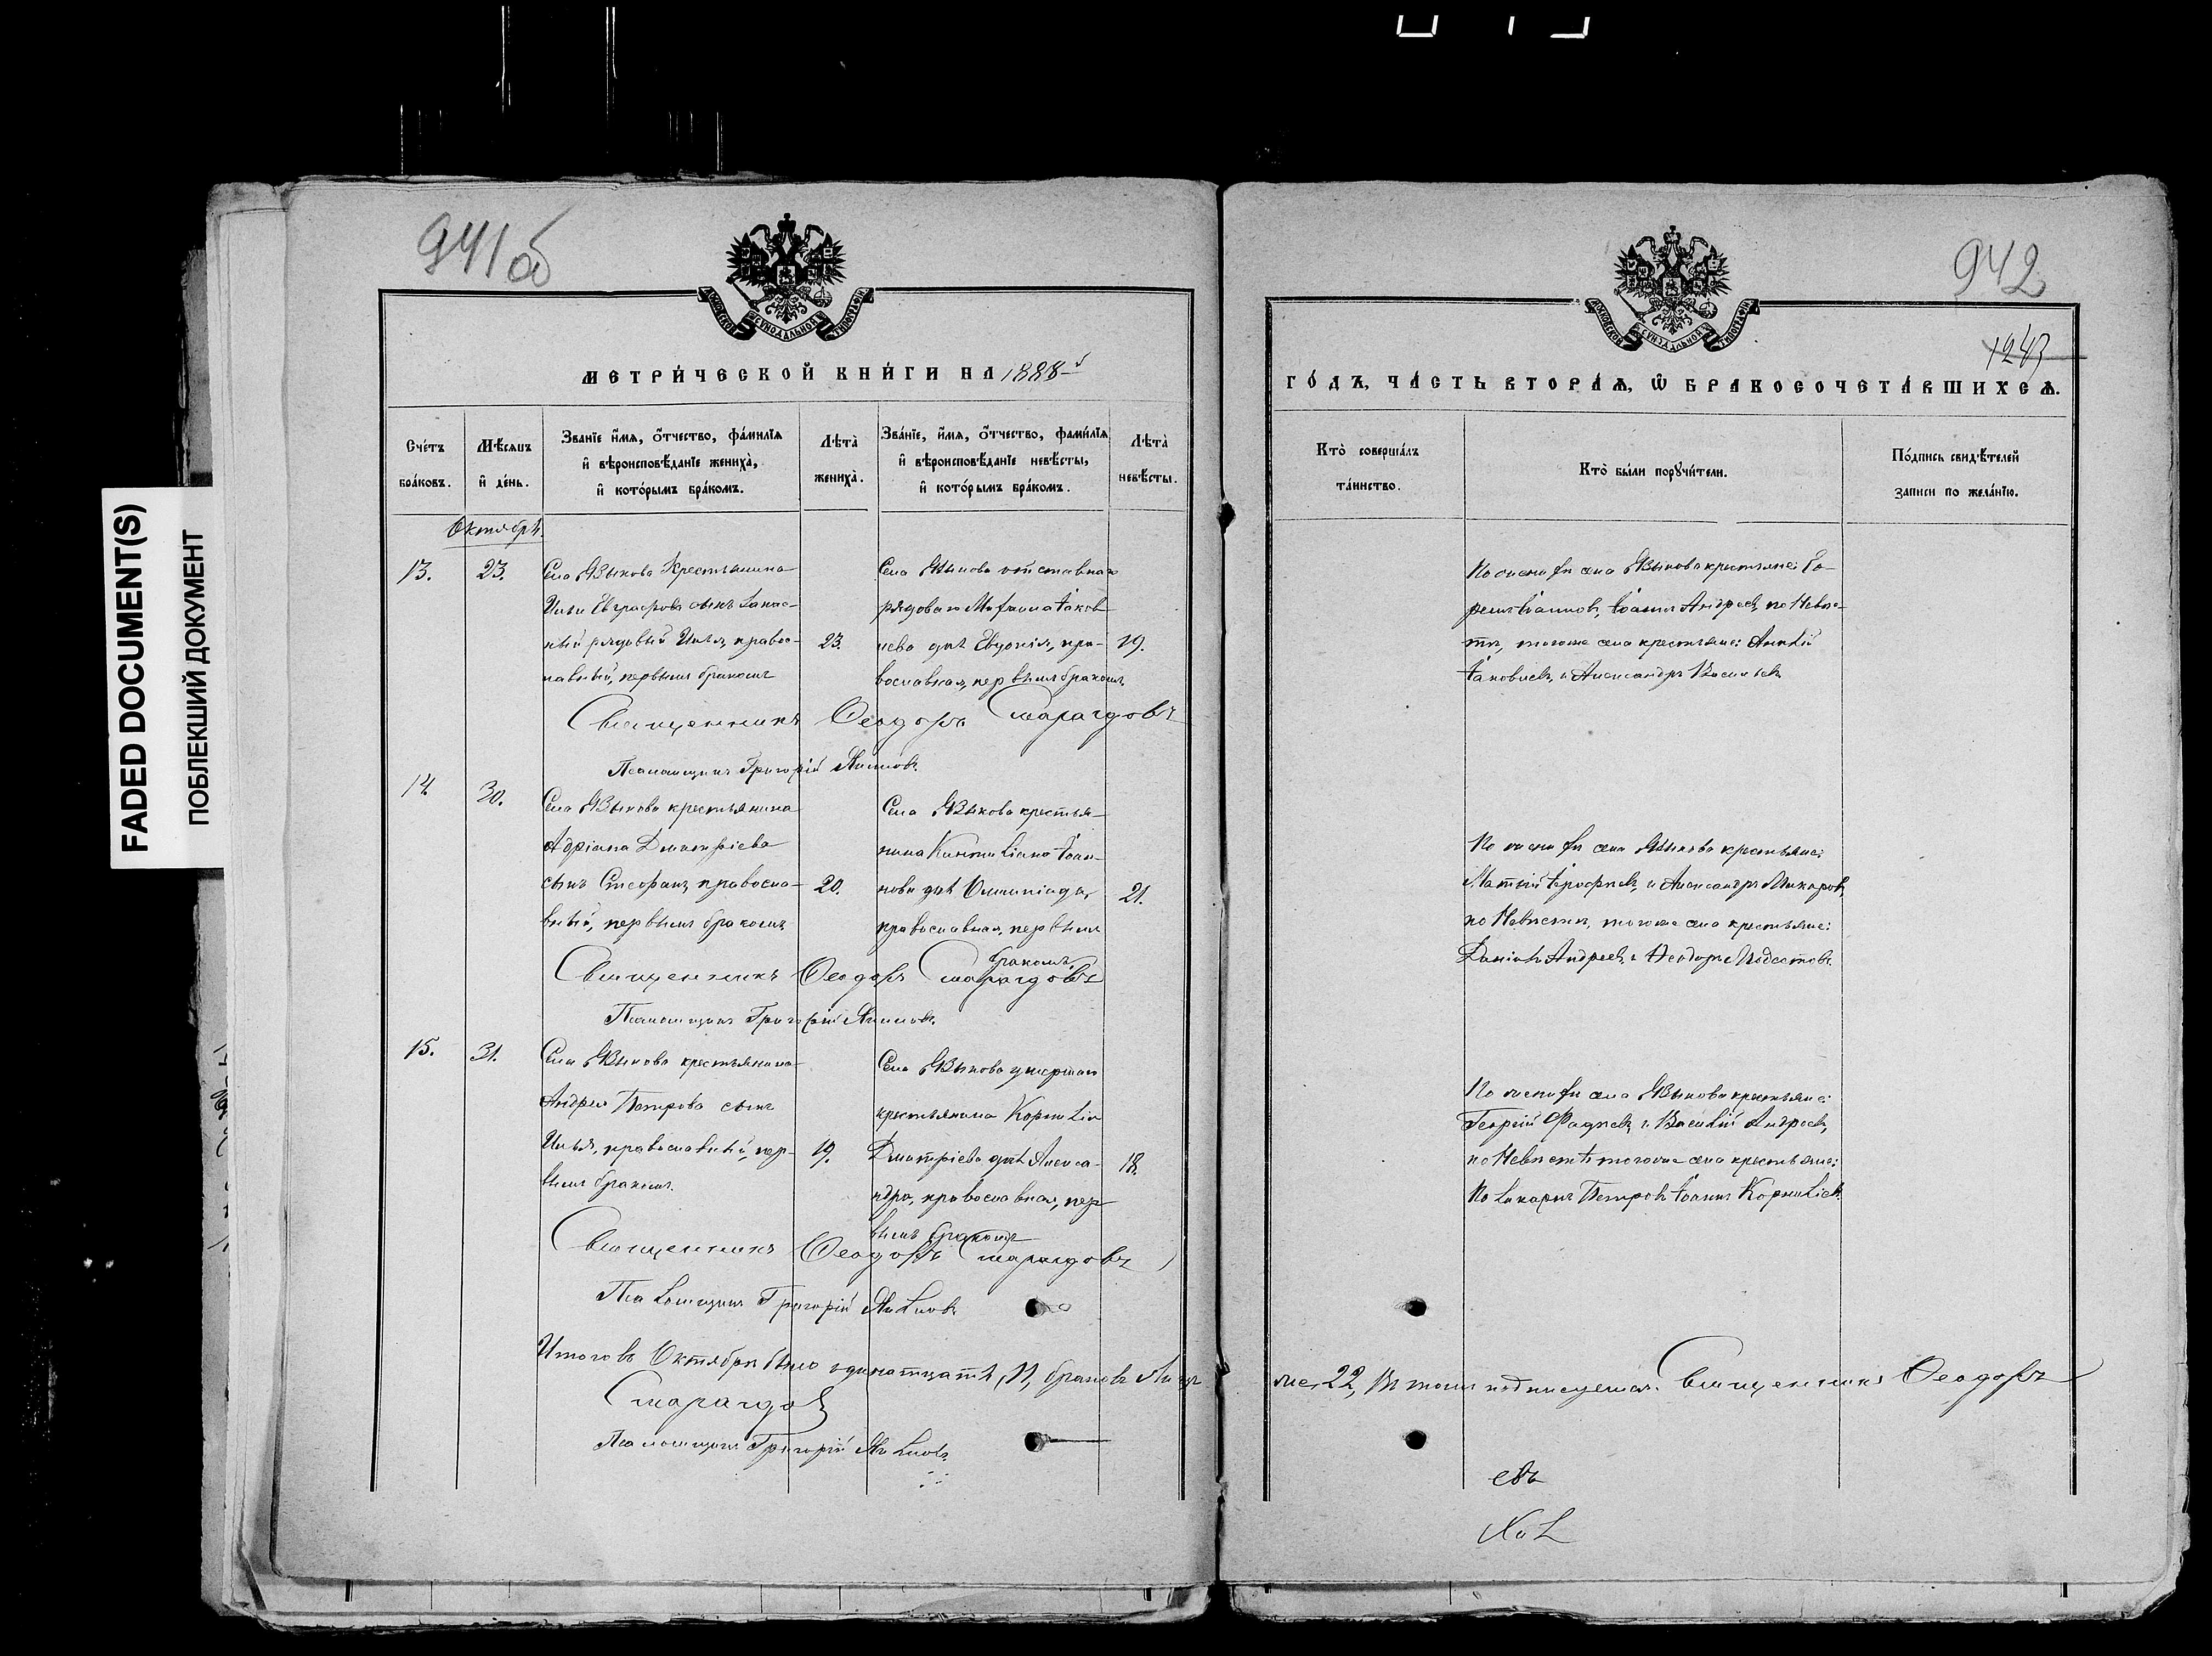 FADED DOCUMENT(S)
ПОБЛЕКШИЙ ДОКУМЕНТ
941об
942
1243
МОСКОВСКОЙ СѴНОДАЛЬНОЙ ТИПОГРАФІИ
МОСКОВСКОЙ СѴНОДАЛЬНОЙ ТИПОГРАФІИ
МЕТРИ́ЧЕСКОЙ КНИ́ГИ НА 1888й
ГО́ДЪ, ЧА́СТЬ ВТОРА́Ѧ, Ѽ БРАКОСОЧЕТА́ВШИХСѦ.
Сче́тъ бра́ковъ.
Мѣ́сяцъ и҆ де́нь.
Зва́нїе и҆́мѧ, о҆́тчество, фами́лїѧ
и҆ вѣроисповѣ́данїе жениха̀,
и҆ кото́рымъ бра́комъ.
Лѣта̀ жениха̀.
Зва́нїе, и҆́мѧ, о҆́тчество, фами́лїѧ
и҆ вѣроисповѣ́данїе невѣ́сты,
и҆ кото́рымъ бра́комъ.
Лѣта̀ невѣ́сты.
Кто̀ соверша́лъ
та́инство.
Кто̀ бы́ли порꙋчи́тели.
По́дпись свидѣ́телей
записи по жела́нїю.
Октябрь.
13. 23.
Села Языкова Крестьянина
Ильи Евграфова сынъ запас-
ный рядовый Илья, правос-
лавный, первымъ бракомъ
23.
Села Языкова отставнаго
рядоваго Іаков
лева дчь Евдокія, пра-
вославная, первымъ бракомъ
19.
По женихѣ села Языкова крестьяне:
Іоаннъ Андреевъ, по Невѣс-
тѣ, тогоже села крестьяне:
Іаковлевъ, и Александръ Васильевъ
Священникъ Ѳеодоръ Смарагдовъ
Псаломщикъ Григорій Акимовъ.
14. 30.
Села Языкова крестьянина
Адріана Димитріева
сынъ Стефанъ, правосла-
вный, первымъ бракомъ
20.
Села Языкова крестья-
нина Кинтиліана Іоан-
нова дчь Олимпіада,
православная, первымъ
бракомъ
21.
По женихѣ села Языкова крестьяне:
и Александръ Макаровъ,
по Невѣстѣ, тогоже села крестьяне:
Даніилъ Андреевъ и Ѳеодоръ Модестовъ.
Священникъ Ѳеодоръ Смарагдовъ
Псаломщикъ Григорій Акимовъ.
15. 31.
Села Языкова крестьянина
Андрея Петрова сынъ
Илья, православный, пер-
вымъ бракомъ.
19.
Села Языкова умершаго
крестьянина Корнилія
Димитріева дчь Алекса-
ндра, православная, пер-
вымъ бракомъ
18.
По женихѣ села Языкова крестьяне:
Георгій и Василій Андреевъ,
по Невѣстѣ тогоже села крестьяне:
Поликарпъ Петровъ Іоаннъ Корниліевъ.
Священникъ Ѳеодоръ Смарагдовъ
Псаломщикъ Григорій Акимовъ
Итого въ Октябрѣ было одинатцать, 11, браковъ
22, въ томъ подписуемся. Священникъ Ѳеодоръ
Смарагдовъ
Псаломщикъ Григорій Акимовъ.